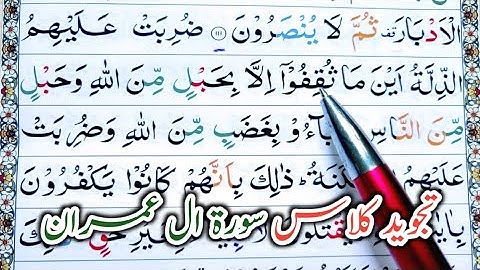 الۡاَدۡبَارَ ثُمَّ لَا يُنۡصَرُوۡنَ ﴿۱۱۱﴾ ضُرِبَتۡ عَلَيۡهِمُ
الذِّلَّةُ اَيۡنَ مَا ثُقِفُوۡۤا اِلَّا بِحَبۡلٍ مِّنَ اللّٰهِ وَحَبۡلٍ
مِّنَ النَّاسِ بَآءُوۡ بِغَضَبٍ مِّنَ اللّٰهِ وَضُرِبَتۡ
عَلَيۡهِمُ ذٰلِكَ بِاَنَّهُمۡ كَانُوۡا يَكۡفُرُوۡنَ
تجوید کلاس سورۃ ال عمران